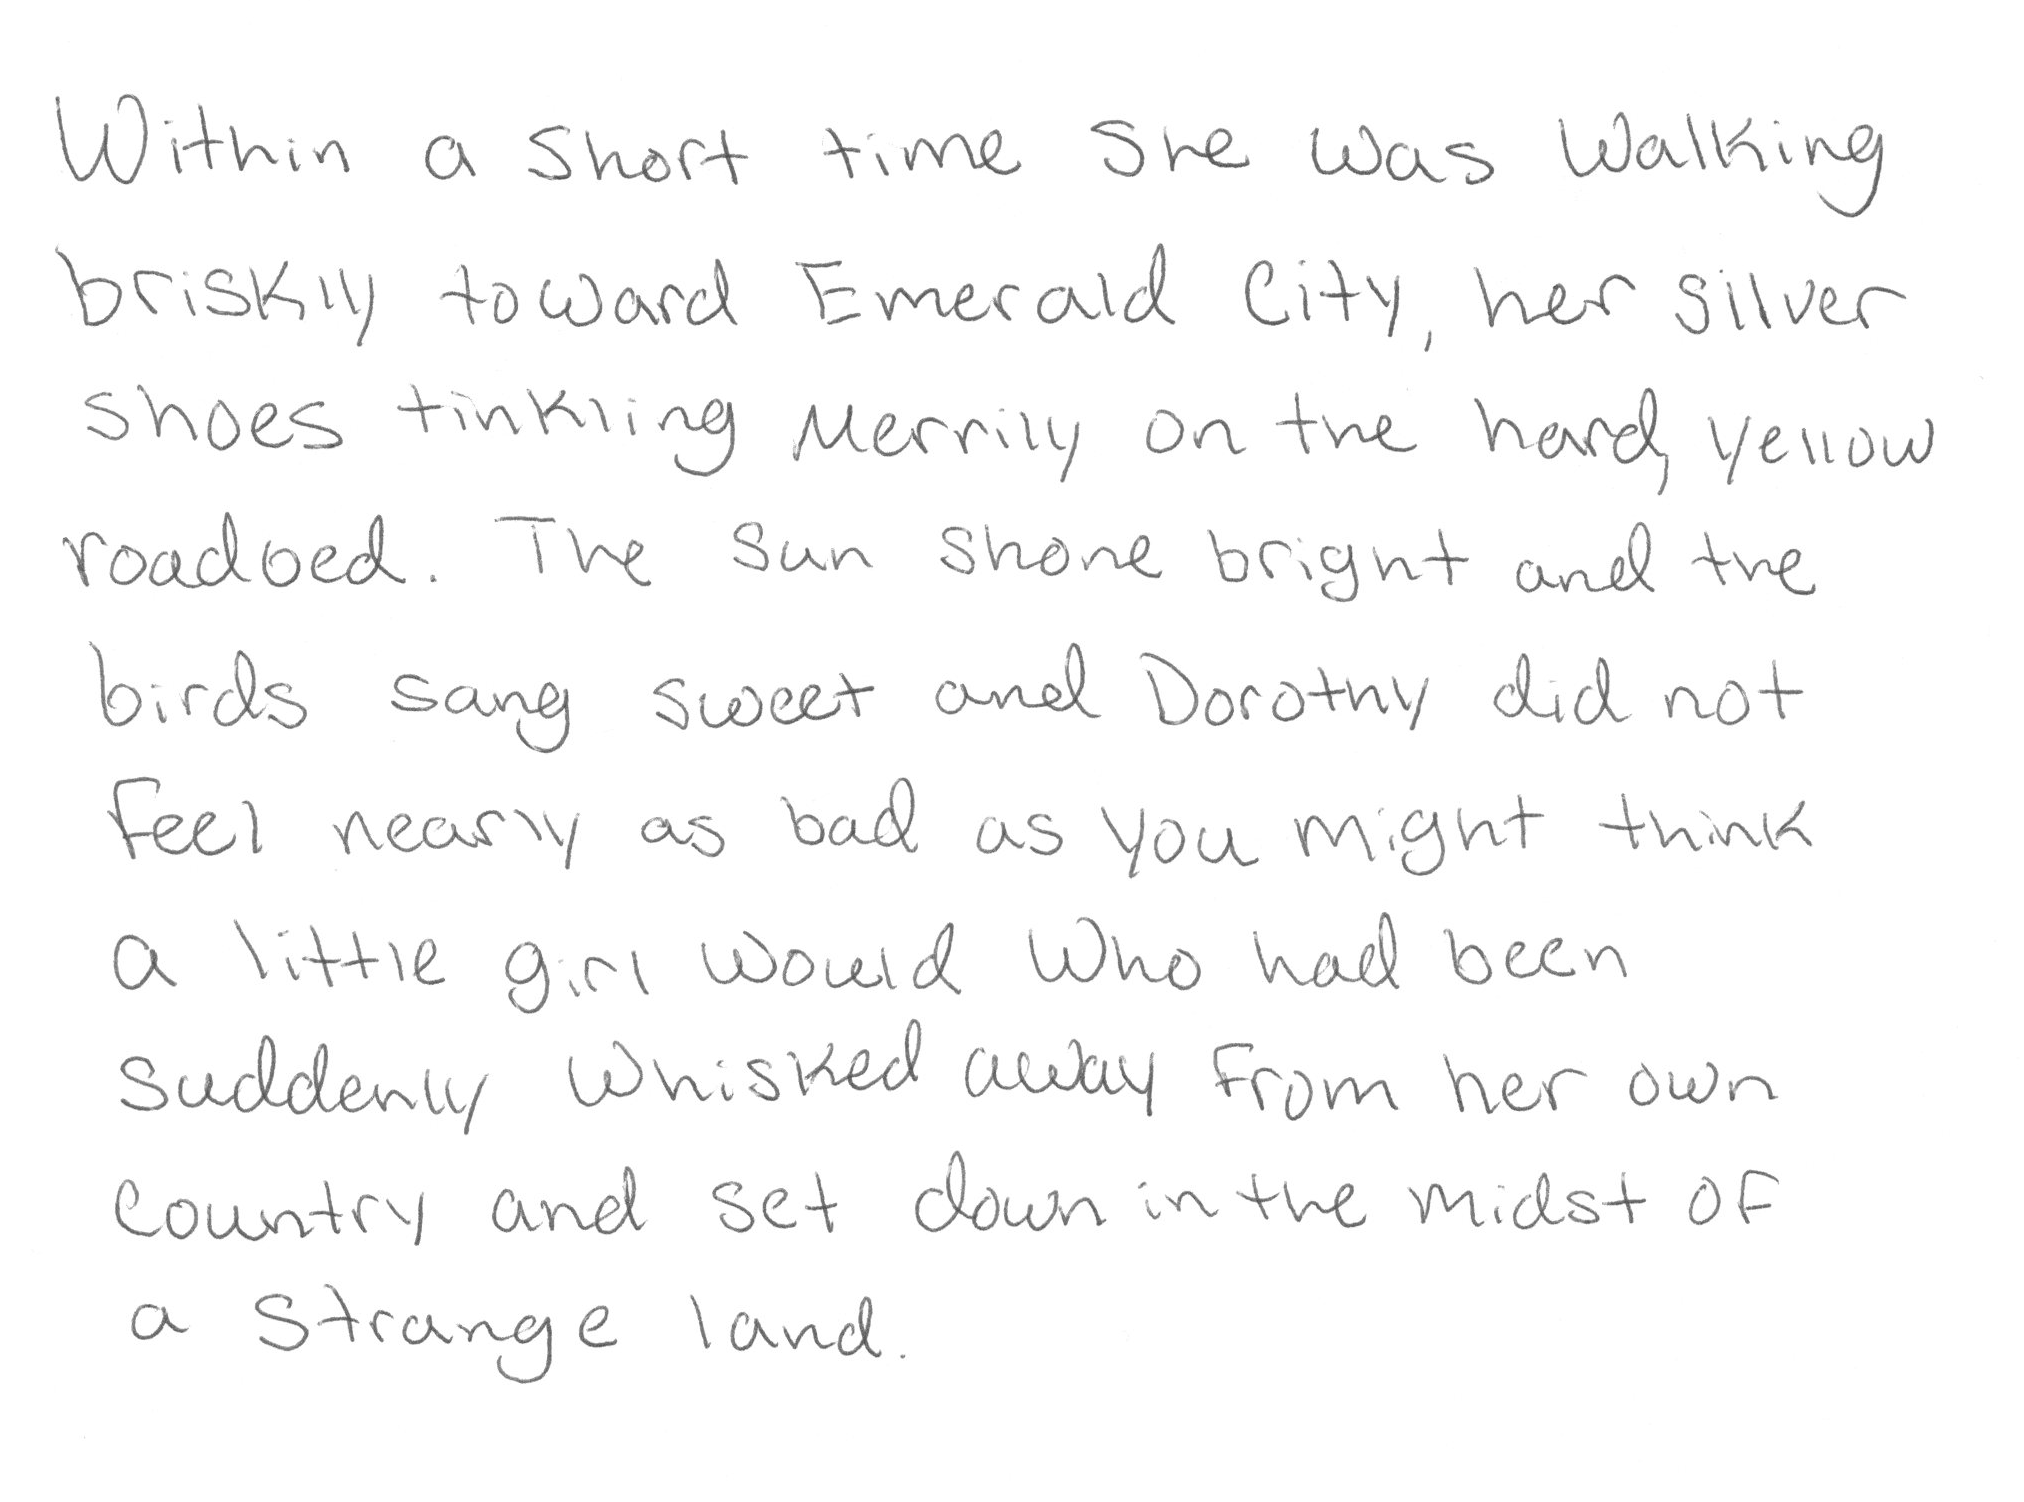 Within a short time she was walking
briskly toward Emerald City, her silver
shoes tinkling merrily on the hard, yellow
roadbed. The sun shone bright and the
birds sang sweet and Dorothy did not
feel nearly as bad as you might think
a little girl would who had been
suddenly whisked away from her own
country and set down in the midst of
a strange land.